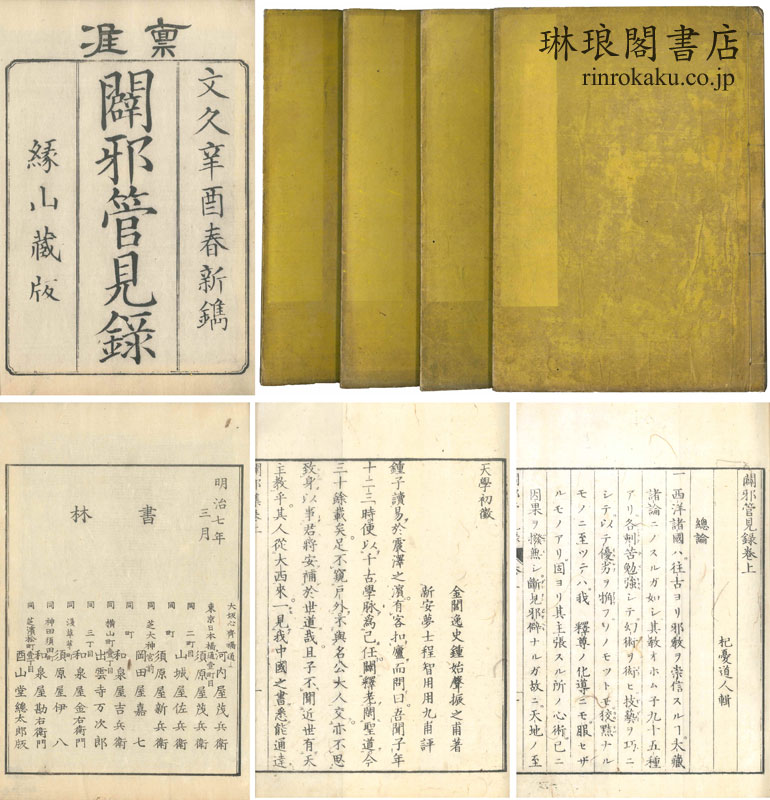 稟准
文久辛酉春新鐫
闢邪管見錄
縁山藏版
琳琅閣書店
rinrokaku.co.jp
闢邪管見錄巻上
杞憂道人輯
總論
一西洋諸國ハ往古ヨリ邪教ヲ崇信スルー大藏
諸論ニノスルガ如シ其教オホム子九十五種
アリ各刻苦勉強シテ幻術ヲ衒ヒ技藝ヲ巧ニ
シテ以テ優劣ヲ
ナル
モノニ至ツテハ我釋尊ノ化導ニモ服セザ
ルモノアリ固ヨリ其主張スル所ノ心術已ニ
因果ヲ撥無シ斷見邪僻ナルガ故ニ天地ノ至
天學初徵
金閶逸史鍾始聲振之甫著
新安夢士程智用用九甫評
鍾子讀易於震澤之濱有客扣廬而問曰吾聞子年
十二三時便以千古學脉為己任闢釋老闡聖道今
三十餘載矣足不窺戶外不與名公大人交亦不思
致身以事君將安補於世道哉且子不聞近世有天
主教乎其人從大西來一見我中國之書悉能通達
明治七年
三月
書林
大坂心齊橋通 河内屋茂兵衛
東京日本橋通壹町目 須原屋茂兵衛
同 二町目 山城屋佐兵衛
同 町 須原屋新兵衛
芝大神宮前 岡田屋嘉七
同 町 和泉屋吉兵衛
同 横山町壹丁目 出雲寺万次郎
同 三丁目 和泉屋金右衛門
同 浅草茅町 須原屋伊八
同 神田須田町 和泉屋勘右衛門
同 芝濱松町壹丁目 酉山堂總太郎版